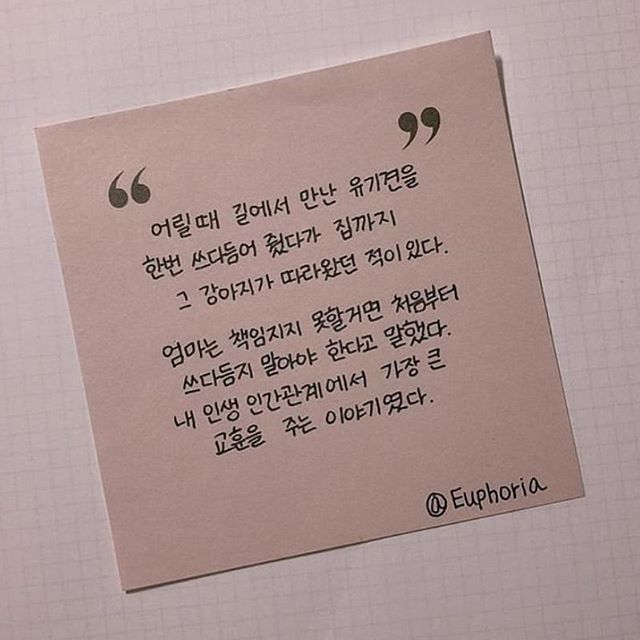 “ ”
어릴때 길에서 만난 유기견을
한번 쓰다듬어 줬다가 집까지
그 강아지가 따라왔던 적이 있다.
엄마는 책임지지 못할거면 처음부터
쓰다듬지 말아야 한다고 말했다.
내 인생 인간관계에서 가장 큰
교훈을 주는 이야기였다.
@Euphoria